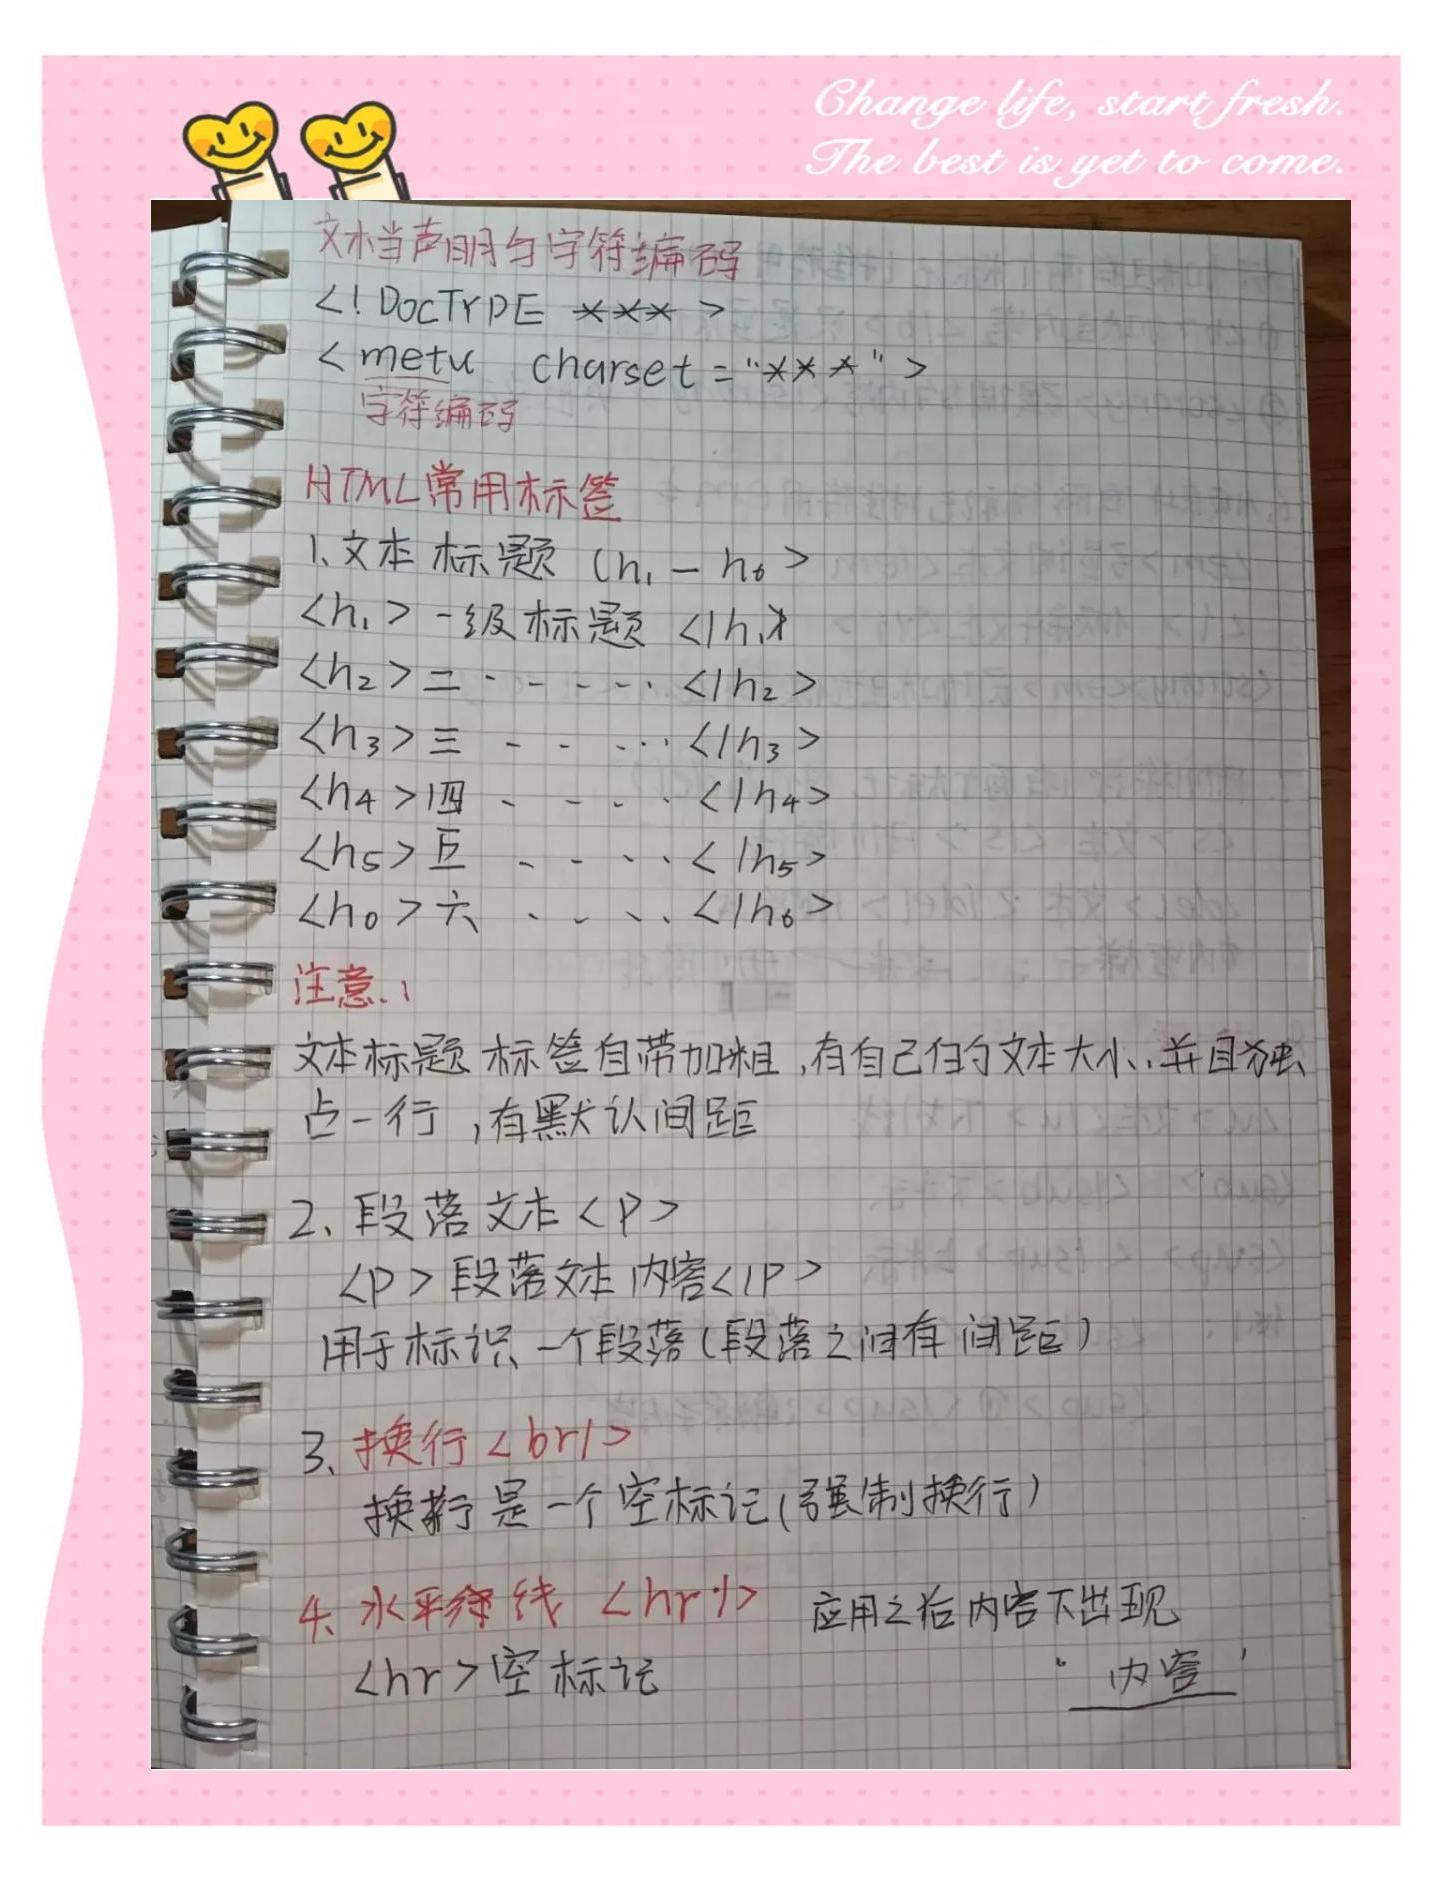 Change life, start fresh.
The best is yet to come.
文档声明与字符编码
<! DOCTYPE *** >
<meta charset = "***" >
字符编码
HTML常用标签
1、文本标题 (h1 — h6 >
<h1> 一级标题 </h1>
<h2> 二 ······ </h2>
<h3> 三 ······ </h3>
<h4> 四 ···· </h4>
<h5> 五 ···· </h5>
<h6> 六 ···· </h6>
注意：
文本标题标签自带加粗，有自己的文本大小，并且独
占一行，有默认间距
2、段落文本<P>
<P>段落文本内容</P>
用于标识一个段落(段落之间有间距)
3、换行<br/>
换行是一个空标记(强制换行)
4、水平线 <hr/> 应用之后内容下出现
<hr>空标记 " 内容 "